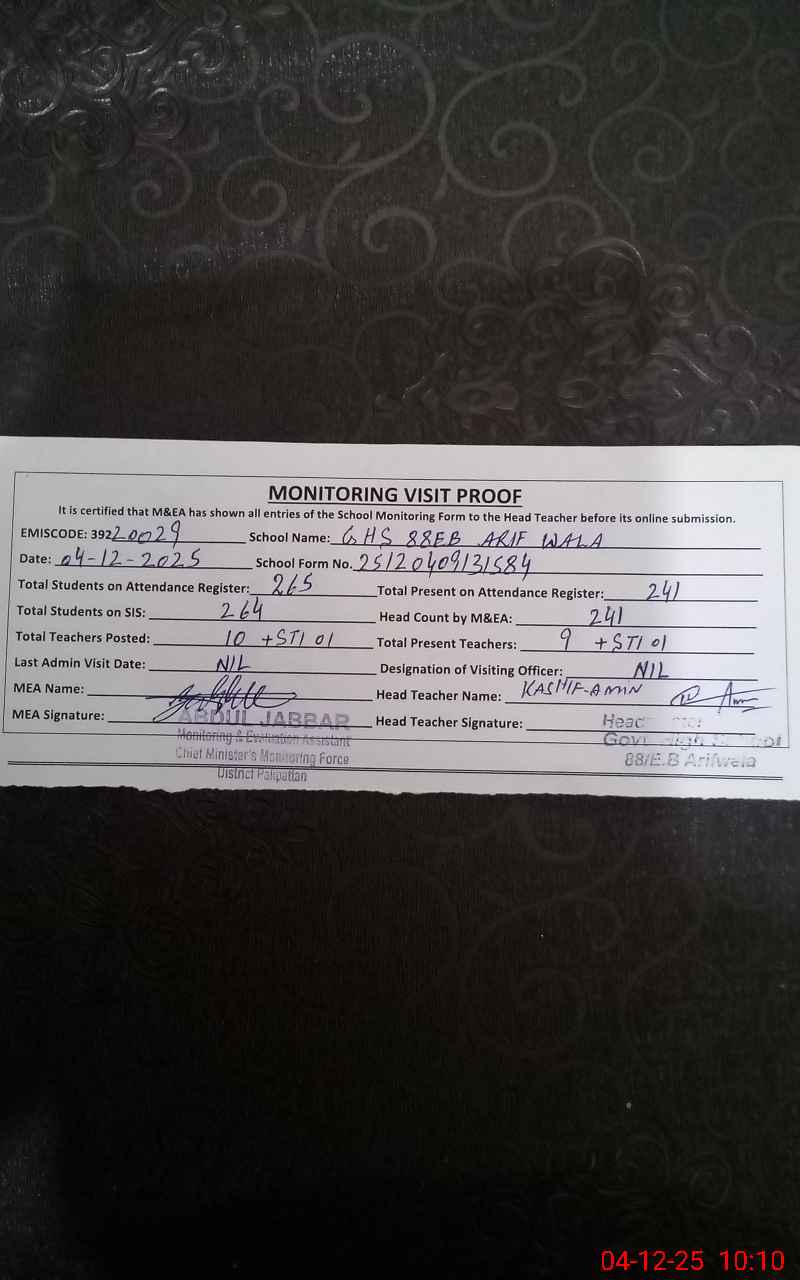 MONITORING VISIT PROOF
It is certified that M&EA has shown all entries of the School Monitoring Form to the Head Teacher before its online submission.
EMISCODE: 39220029 School Name: GHS 88EB ARIF WALA
Date: 04-12-2025 School Form No. 25120409131584
Total Students on Attendance Register: 265 Total Present on Attendance Register: 241
Total Students on SIS: 264 Head Count by M&EA: 241
Total Teachers Posted: 10 +STI 01 Total Present Teachers: 9 +STI 01
Last Admin Visit Date: NIL Designation of Visiting Officer: NIL
MEA Name: Head Teacher Name: KASHIF-AMIN
MEA Signature: ABDUL JABBAR Head Teacher Signature: Head
Monitoring & Evaluation Assistant Govt High School
Chief Minister's Monitoring Force 88/E.B Arifwala
District Pakpattan
04-12-25 10:10